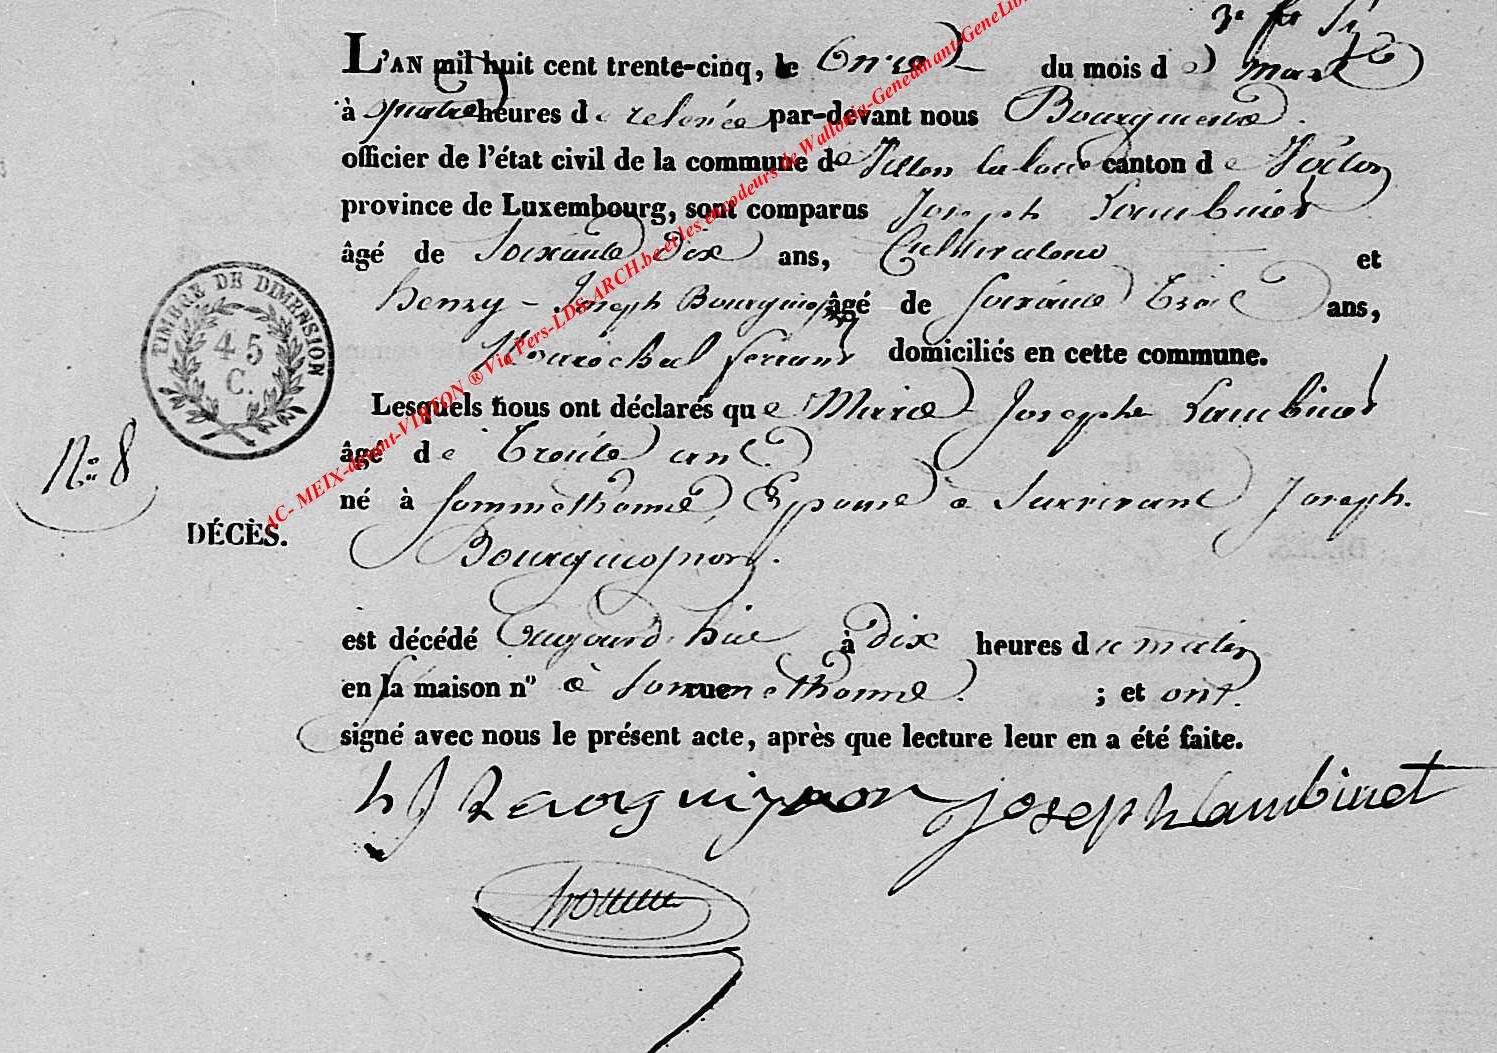 L'AN mil huit cent trente-cinq, le Onze du mois de mars
à quatre heures de relevée par-devant nous Bourgmestre
officier de l'état civil de la commune de Villers la loue canton de Virton
province de Luxembourg, sont comparus Joseph Lambinet
âgé de Soixante Dix ans, Cultivateur et
henry - Joseph Bourguignon âgé de Soixante Trois ans,
Maréchal ferrant domiciliés en cette commune.
Lesquels nous ont déclarés que Marie Josephe Lambinet
âgé de Trente ans
N° 8
né à Sommethonne, Epouse a Survivant Joseph
DÉCÈS.
Bourguignon.
est décédé aujourd'hui à dix heures du matin
en la maison n° a rue Sommethonne ; et ont
signé avec nous le présent acte, après que lecture leur en a été faite.
h J Bourguignon Joseph Lambinet
TIMBRE DE DIMENSION
45
C.
AC- MEIX-devant-VIRTON ® Via Pers-LDS-ARCH.be et les encodeurs de Wallonia-Genedinant-GeneLib